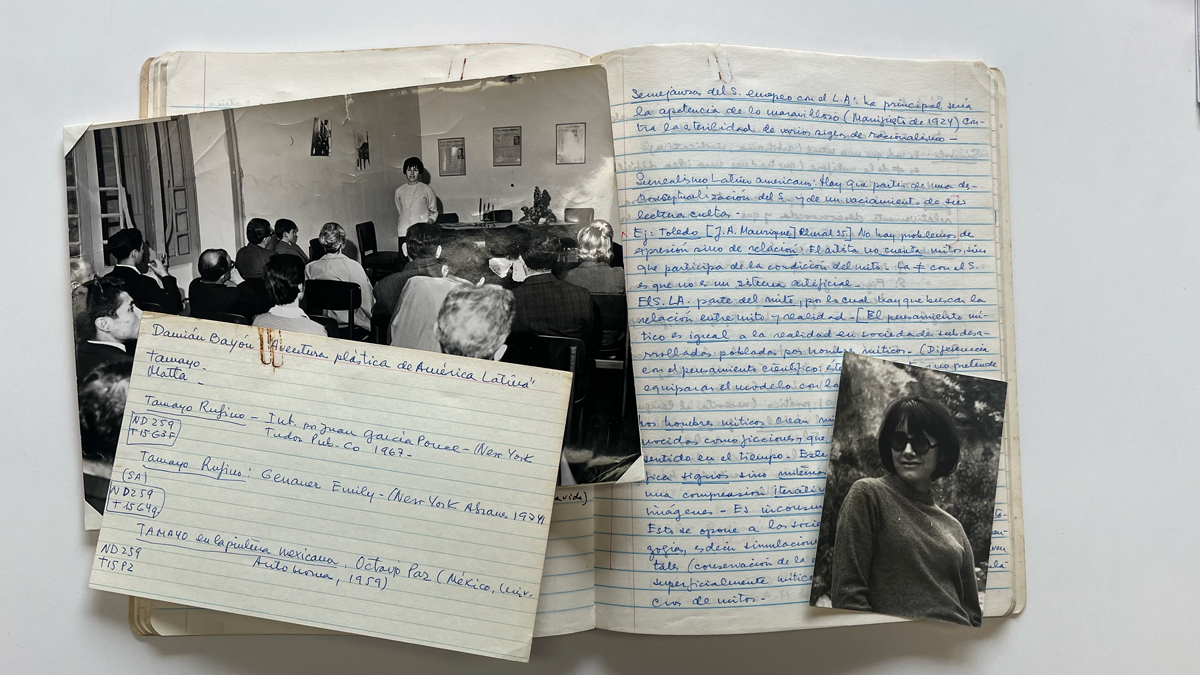 Damián Bayon "Aventura plástica de América Latina"
Tamayo.
Matta.
Tamayo Rufino - Int. por Juan García Ponce - (New York
Tudor Pub. Co 1967-
ND 259
T15G3F
Tamayo Rufino: Genauer Emily - (New York Abrams 1974
(SA)
ND259
T15G4g
TAMAYO en la pintura mexicana. Octavio Paz (México, Univ.
Autónoma, 1959)
ND 259
T15P2
Semejanzas del S. europeo con el L.A: La principal sería
la apetencia de lo maravilloso (Manifiesto de 1924) con-
tra la esterilidad de varios siglos de racionalismo-
Surrealismo Latino americano: Hay que partir de una des-
conceptualización del S. y de un vaciamiento de sus
lecturas cultas.-
Ej: Toledo [J.A. Manrique] Plural 35]. No hay problemas de
expresión sino de relación. El artista no cuenta mitos, sino
que participa de la condición del mito. La ≠ con el S.
es que no es un sistema artificial-
El S. LA. parte del mito, por lo cual hay que buscar la
relación entre mito y realidad-[El pensamiento mí-
tico es igual a la realidad en sociedades subdesa-
rrolladas poblados por hombres míticos- (Diferencia
con el pensamiento científico: éste pretende
equiparar el modelo con la
Los hombres míticos crean
como ficciones, que
sentido en el tiempo. Este
fica signos sino
una comprensión
imágenes- Es
Esto se opone a las
es decir simulacion
tales (conservación de la
superficialmente
cros de mitos-